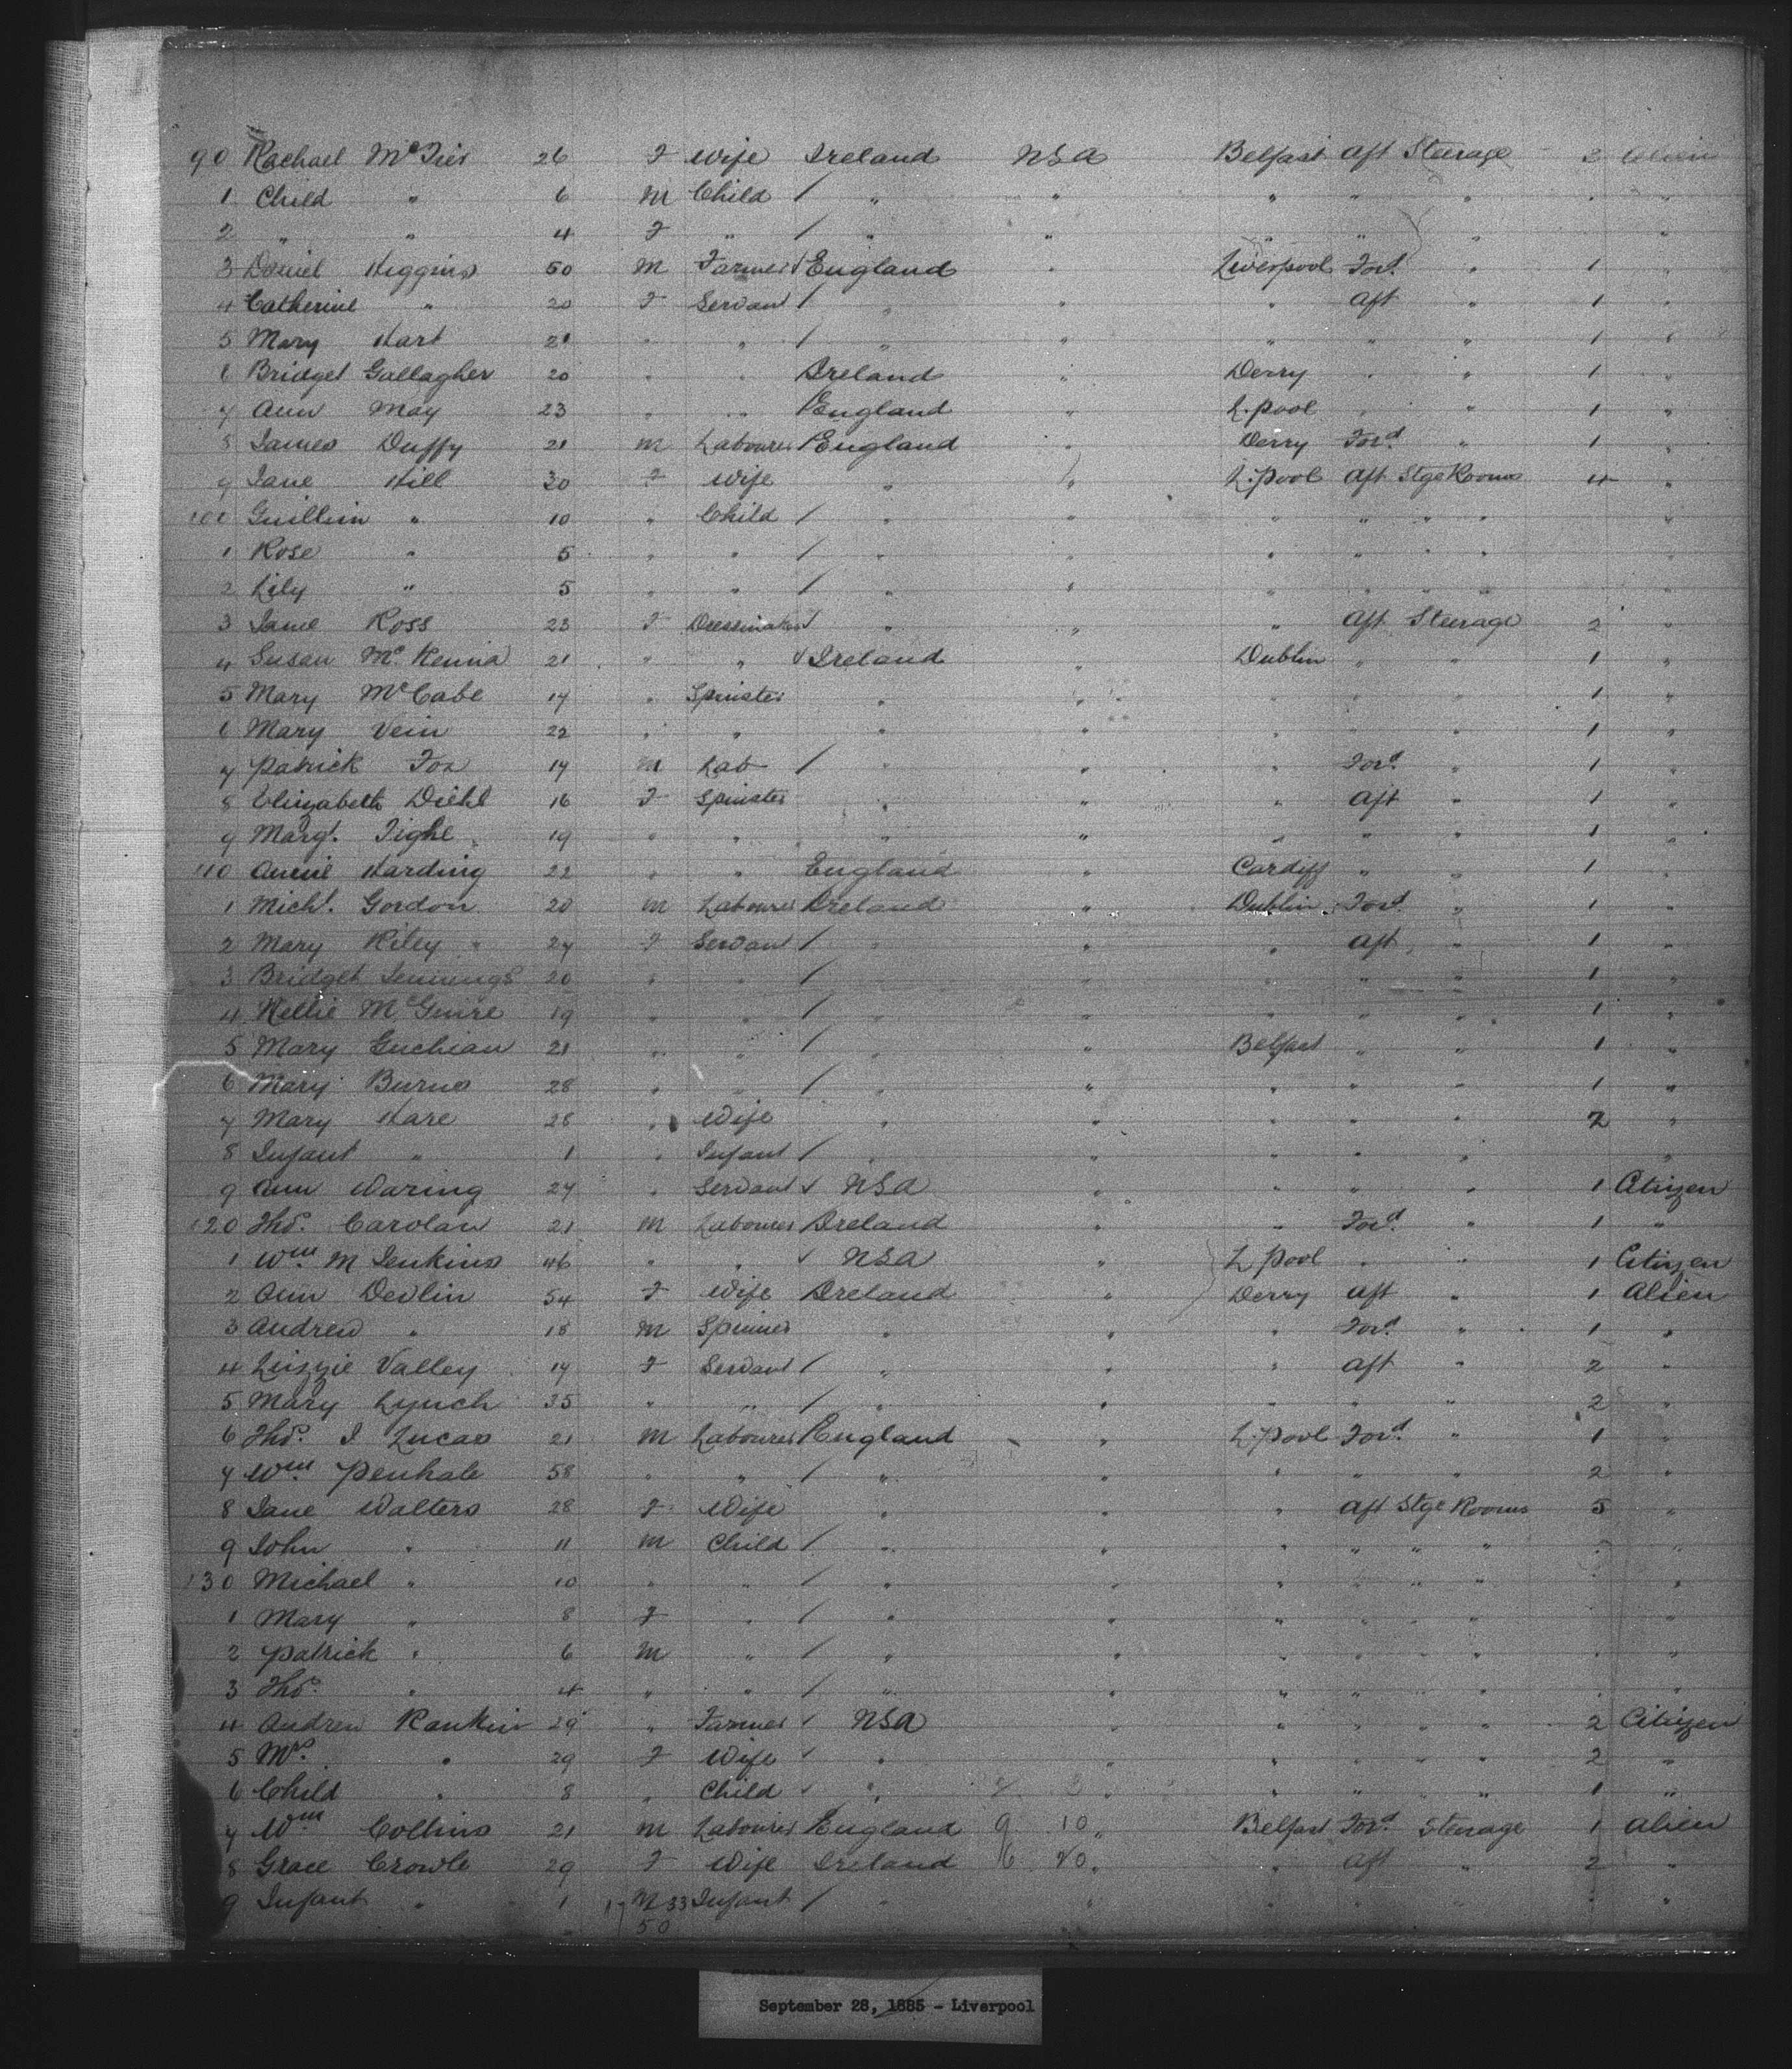 90 Rachael McTier 26 F Wife Ireland USA Belfast Aft Steerage 3 Alien
1 Child " 6 M Child / " " " " " "
2 " " 4 F " / " " " " " "
3 Daniel Higgins 50 M Farmer √ England " Liverpool Ford. " 1 "
4 Catherine " 20 F Servant / " " " Aft " 1 "
5 Mary Hart 21 " " / " " " " " 1 "
6 Bridget Gallagher 20 " " Ireland " Derry " " 1 "
7 Ann May 23 " " / England " L.pool " " 1 "
8 James Duffy 21 M Labourer / England " Derry Ford. " 1 "
9 Jane Hill 30 F Wife " " L.pool Aft Stge Rooms 4 "
100 " 10 " Child / " " " " " " "
1 Rose " 5 " " / " " " " " " "
2 Lily " 5 " " / " " " " " " "
3 Jane Ross 23 F Dressmaker √ " " " Aft Steerage 2 "
4 Susan Mc.Kenna 21 " " √ Ireland " Dublin " " 1 "
5 Mary McCabe 17 " Spinster " " " " " 1 "
6 Mary Vein 22 " " " " " " " 1 "
7 Patrick Fox 17 M Lab / " " " Ford. " 1 "
8 Elizabeth Diehl 16 F Spinster " " " Aft " 1 "
9 Margt. Tighe 19 " " " " " " " 1 "
110 Annie Harding 22 " " England " Cardiff " " 1 "
1 Michl. Gordon 20 M Labourer Ireland " Dublin Ford. " 1 "
2 Mary Riley 24 F Servant / " " " Aft " 1 "
3 Bridget Jennings 20 " " / " " " " " 1 "
4 Nellie McGuire 19 " " / " " " " " 1 "
5 Mary 21 " " / " " Belfast " " 1 "
6 Mary Burns 28 " " / " " " " " 1 "
7 Mary Hare 28 " Wife " " " " " 2 "
8 Infant " 1 " Infant / " " " " " "
9 Ann Waring 24 " Servant √ USA " " " " 1 Citizen
120 Thos. Carolan 21 M Labourer Ireland " " Ford. " 1 "
1 Wm. M Jenkins 46 " " √ USA " L Pool " " 1 Citizen
2 Ann Devlin 54 F Wife Ireland " Derry Aft " 1 Alien
3 Andrew " 18 M Spinner " " " Ford. " 1 "
4 Lizzie Valley 17 F Servant / " " " Aft " 2 "
5 Mary Lynch 35 " " / " " " " " 2 "
6 Thos. J Lucas 21 M Labourer / England " L.pool Ford. " 1 "
7 Wm. Penhale 58 " " / " " " " " 2 "
8 Jane Walters 28 F Wife " " " Aft Stge Rooms 5 "
9 John " 11 M Child / " " " " " " "
130 Michael " 10 " " / " " " " " " "
1 Mary " 8 F " / " " " " " " "
2 Patrick " 6 M " / " " " " " " "
3 Thos. " 4 " " / " " " " " " "
4 Andrew Rankin 29 " Farmer √ USA " " " " " 2 Citizen
5 Mrs. " 29 F Wife √ " " " " " " 2 "
6 Child " 8 " Child √ " " " " " " 1 "
7 Wm Collins 21 M Labourer England 9 10 " Belfast Ford. Steerage 1 Alien
8 Grace Crowle 29 F Wife Ireland " " Aft " 2 "
9 Infant " 1 17 M 33 Infant / " " " " " "
50
September 28, 1885 - Liverpool